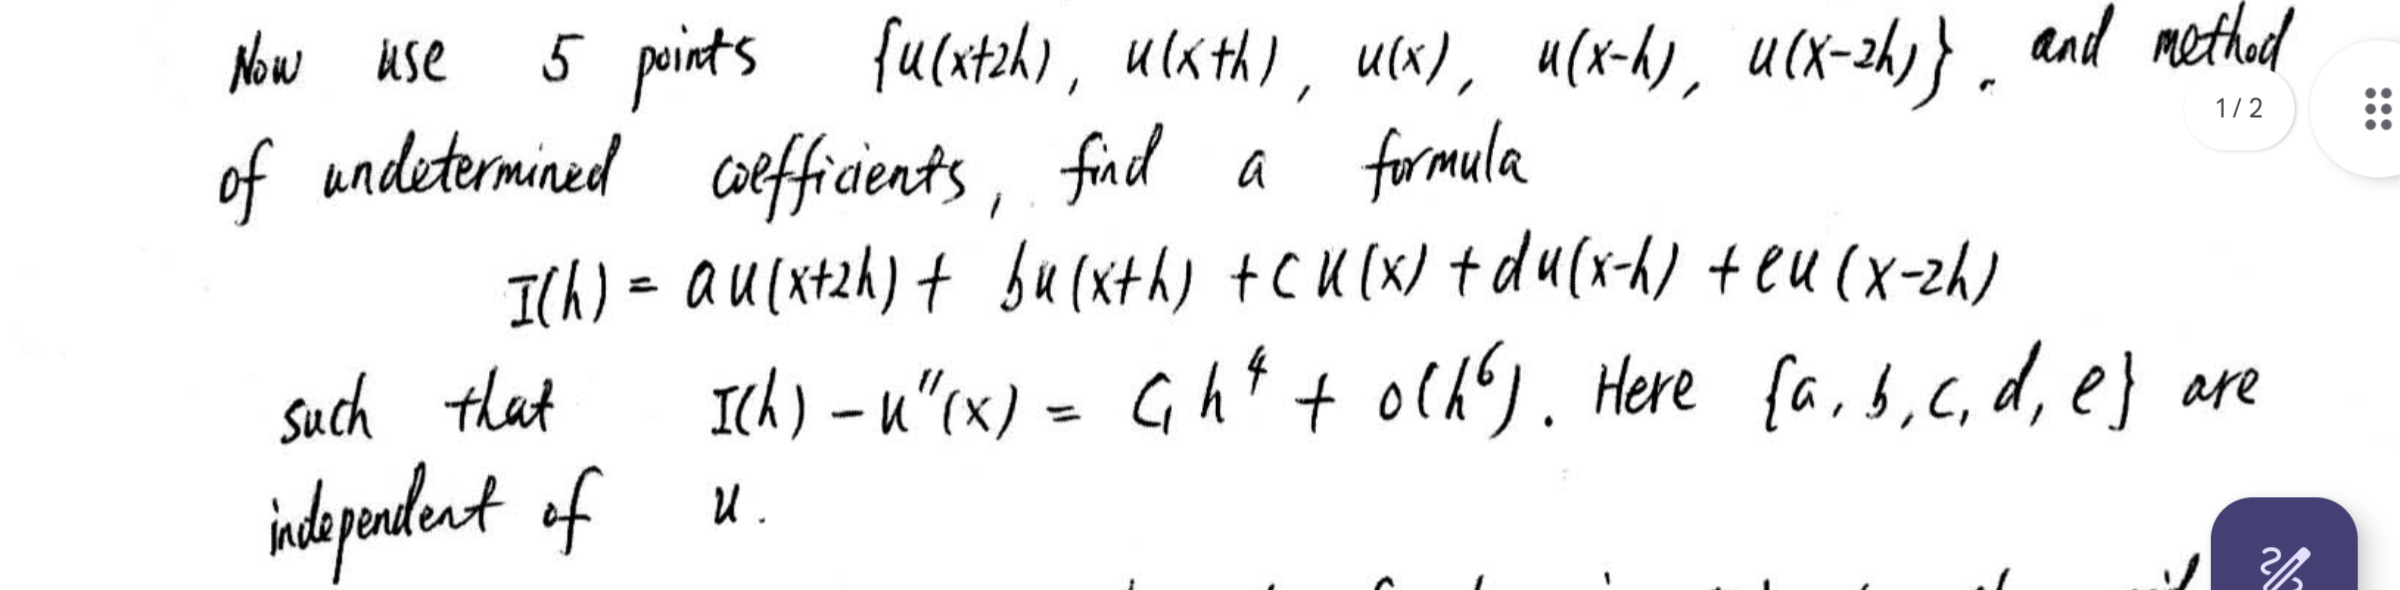 Now use 5 points {u(x+2h), u(x+h), u(x), u(x-h), u(x-2h)}. and method
1 / 2
of undetermined coefficients, find a formula
I(h) = au(x+2h) + bu(x+h) + cu(x) + du(x-h) + eu(x-2h)
such that I(h) - u''(x) = C₁h⁴ + o(h⁶). Here {a, b, c, d, e} are
independent of u.